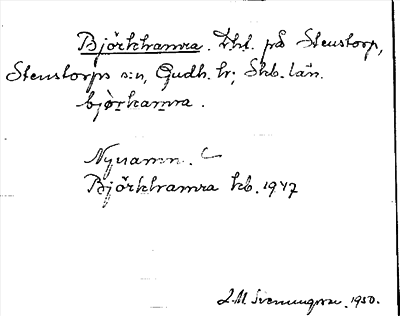 Björkhamra. Lht. på Stenstorp,
Stenstorps sn, Gudh. hr; Skb. län.
bjørkamra.
Nynamn.
Björkhamra kb. 1947
J.M. Svenungsson. 1950.